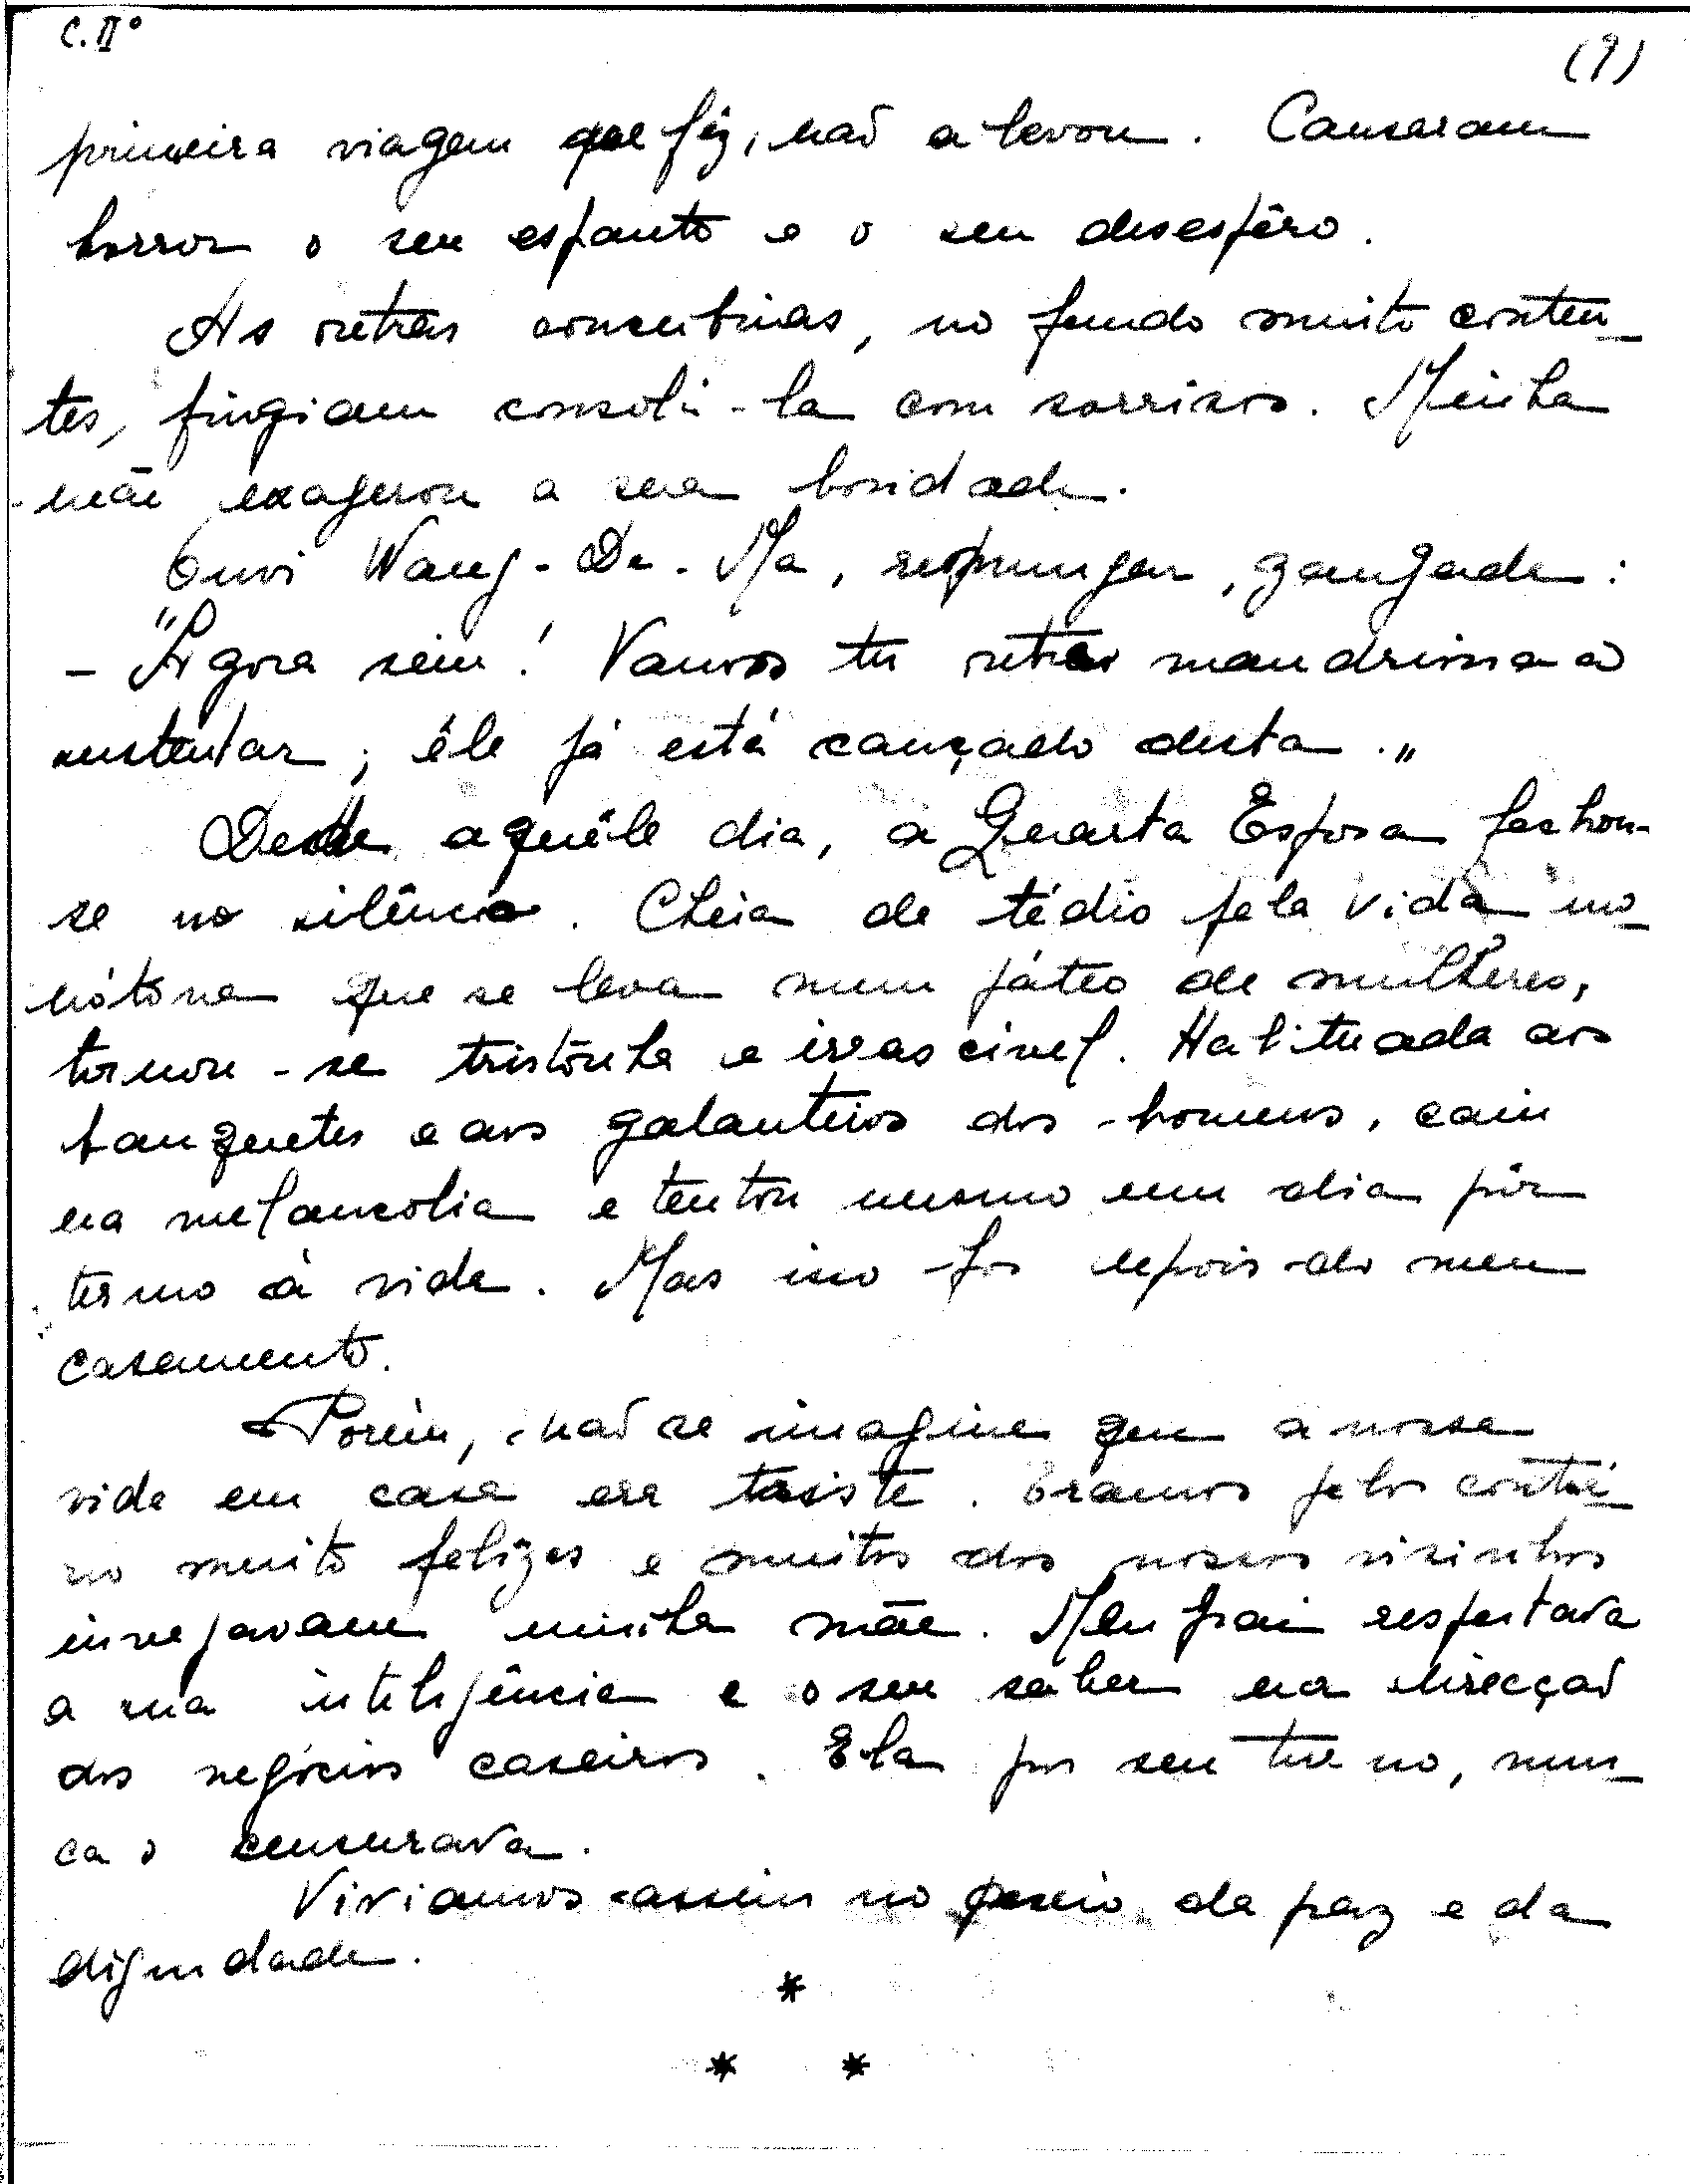 C. IIº
(9)
primeira viagem que fêz, não a levou. Causaram
horror o seu espanto e o seu desespêro.
As outras concubinas, no fundo muito conten-
tes, fingiam consolá-la com sorrisos. Minha
mãe exagerou a sua bondade.
Ouvi Wang-Da-Ma, resmungar, zangada:
- "Agora sim! Vamos ter outra mandriona a
sustentar; êle já está cançado desta."
Desde aquêle dia, a Quarta Esposa fechou-
se no silêncio. Cheia de tédio pela vida mo-
nótona que se leva num páteo de mulheres,
tornou-se tristônha e irrascivel. Habituada aos
banquetes e aos galanteios dos homens, caiu
na melancolia e tentou mesmo um dia pôr
termo à vida. Mas isso foi depois do meu
casamento.
Porém, não se imagine que a nossa
vida em casa era triste. Eramos pelo contrá-
rio muito felizes e muitos dos nossos visinhos
invejavam minha mãe. Meu pai respeitava
a sua inteligência e o seu saber na direcção
dos negócios caseiros. Ela por seu turno, nun-
ca o censurava.
Viviamos assim no seio da paz e da
dignidade.
*
* *